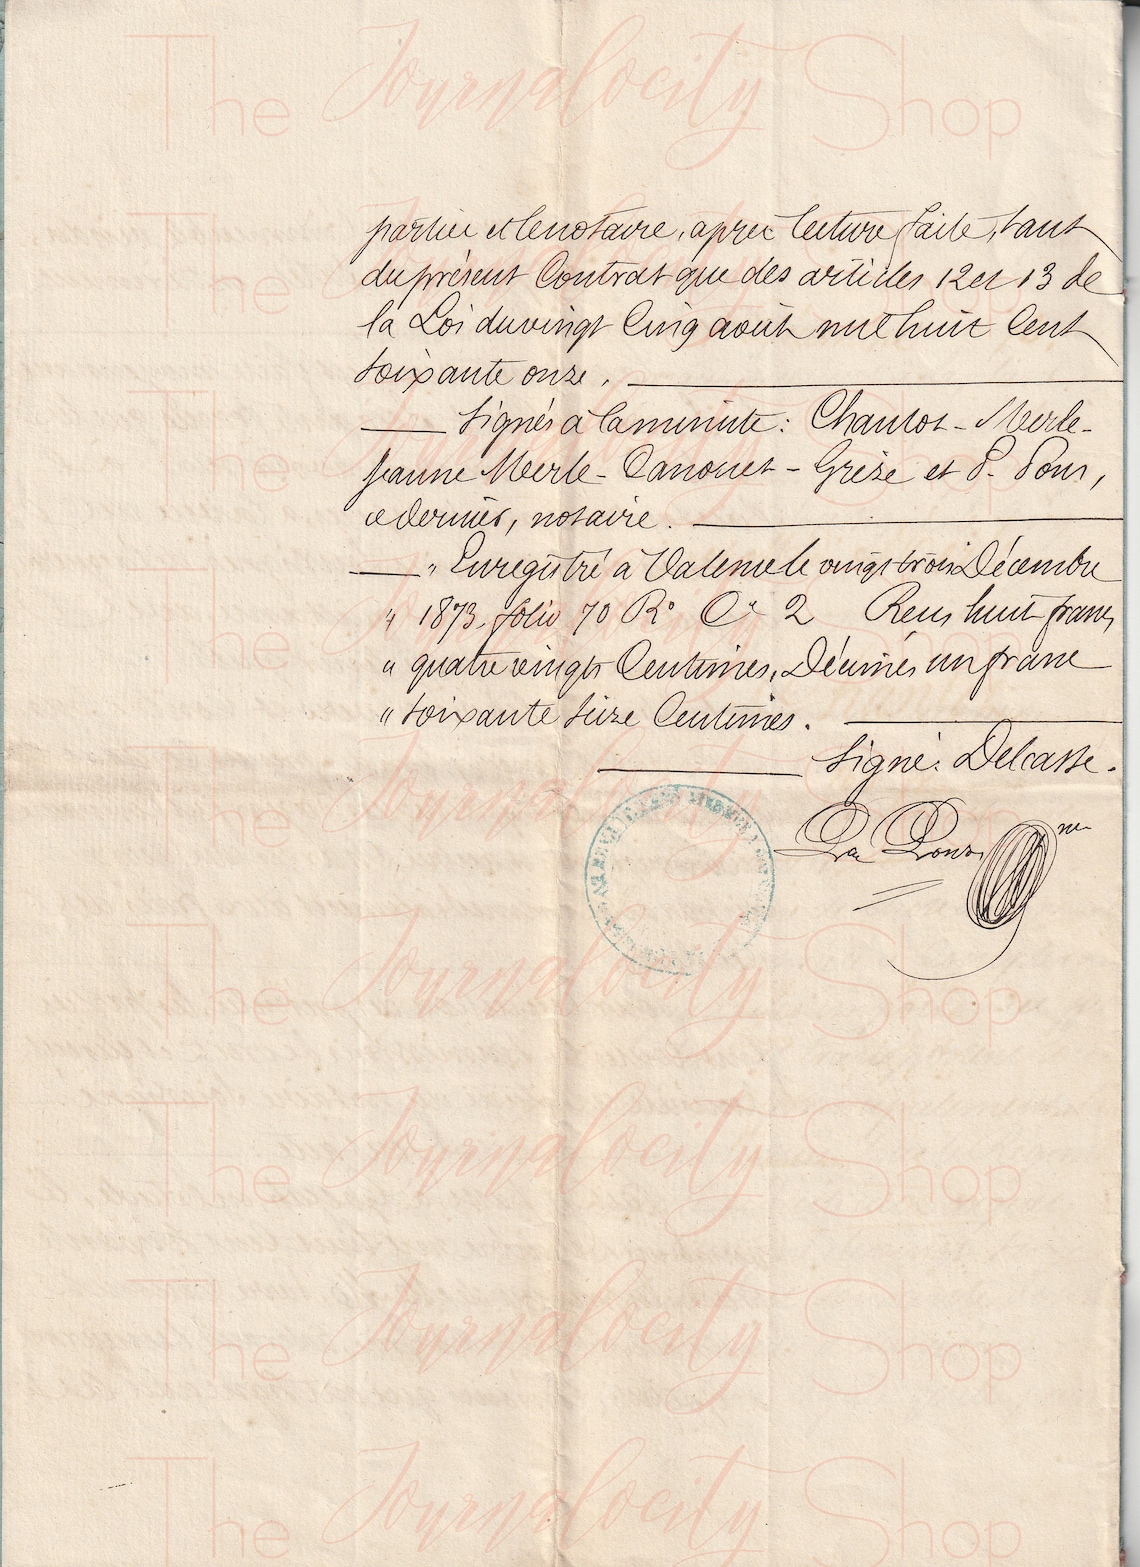 The Journalocity Shop
parties et le notaire, après lecture faite, tant
du présent Contrat que des articles 12 et 13 de
la Loi du vingt Cinq août mil huit Cent
soixante onze.
Signés à la minute: Chaulot - Merle -
Jeanne Merle - Canonet - Grèze et P. Pons,
ce dernier, notaire.
" Enregistré à Valence le vingt trois Décembre
" 1873, folio 70 R° Ce 2 Reçu huit francs
" quatre vingts Centimes, Décimes un franc
" soixante seize Centimes.
Signé: Delcasse.
Pons